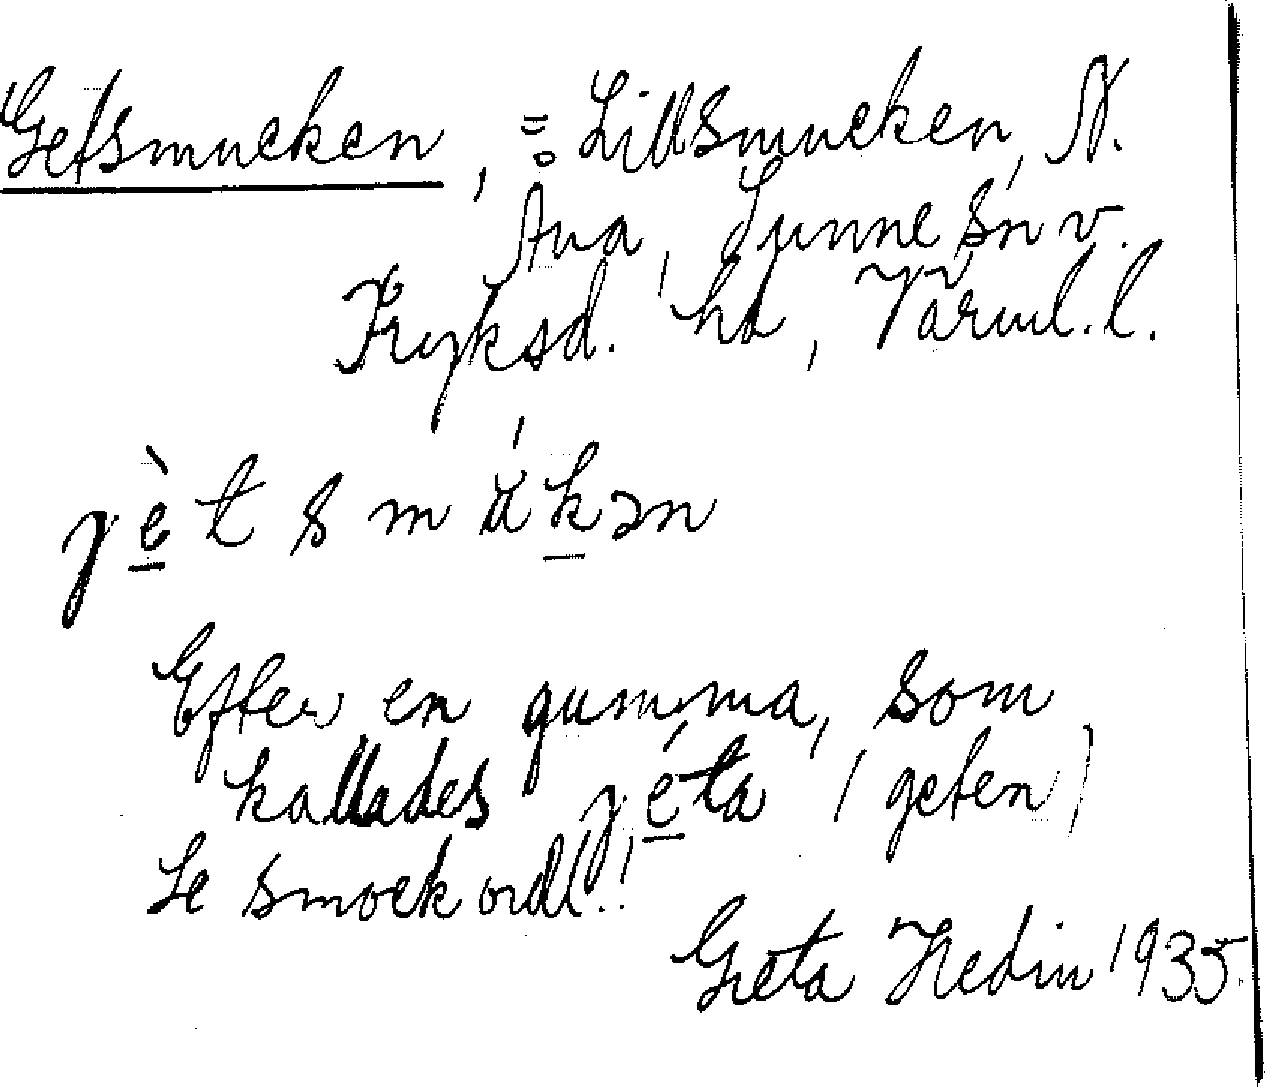 Getsmucken, = Lillsmucken, N.
Åva, Sunne sn v.
Fryksd. hd, Värml. l.
jètsmúkən
Efter en gumma, som
kallades jéta (geten)
Se smock ordl.!
Greta Hedin 1935.